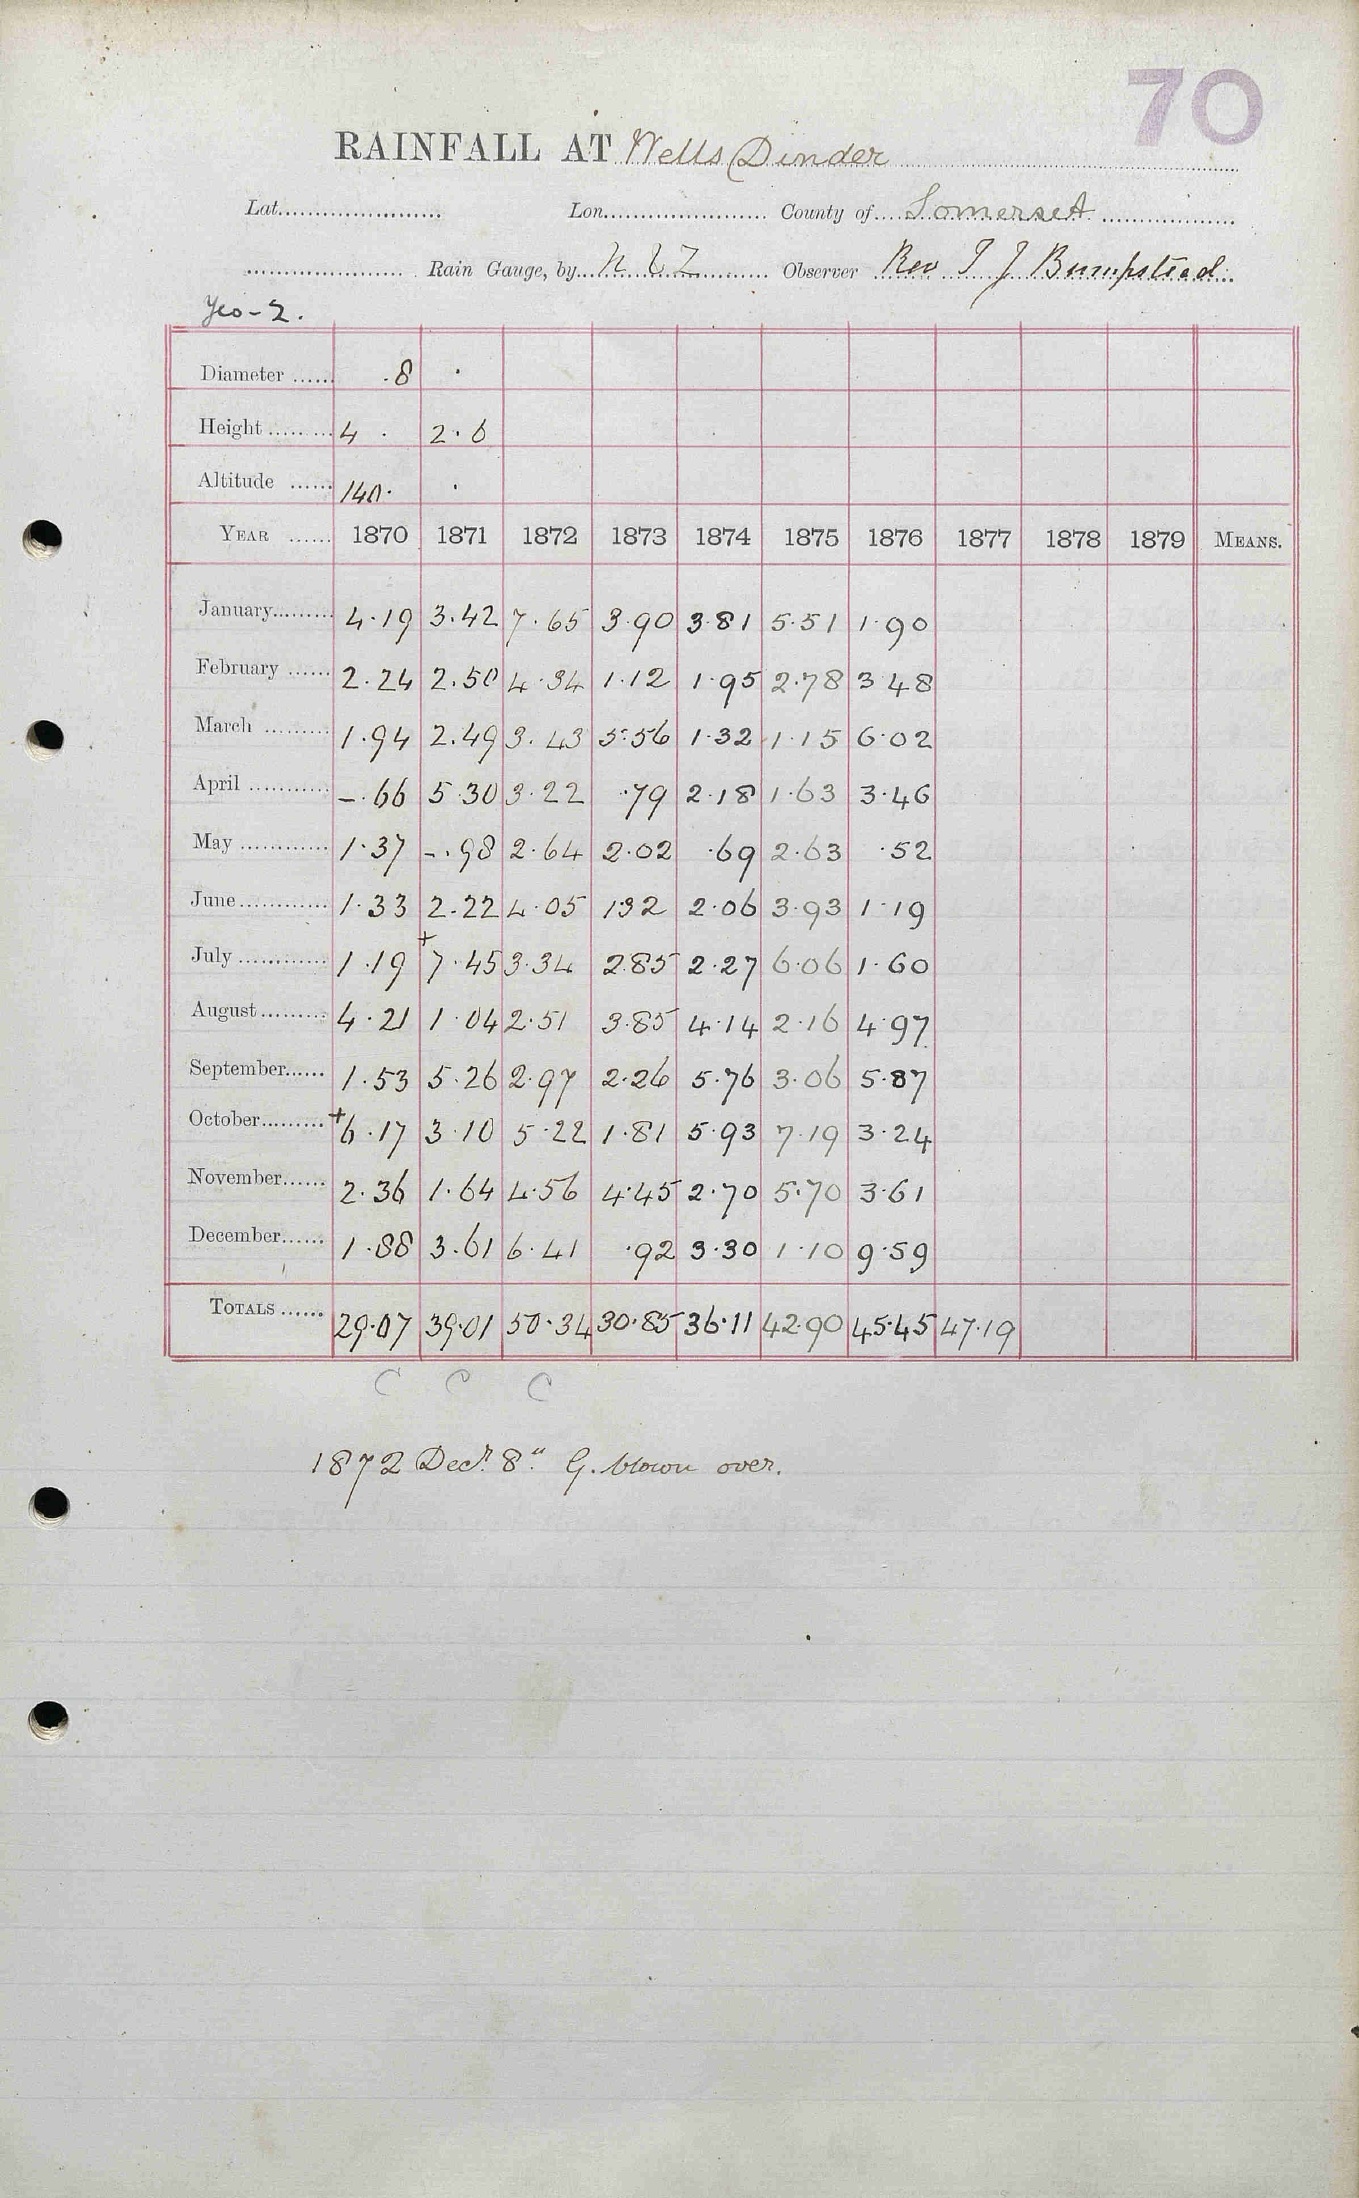 70
RAINFALL AT Wells (Dinder
Lat. Lon. County of Somerset
Rain Gauge, by N & Z Observer Rev T J Bumpstead
Yeo-2.
Diameter ...... .8 .
Height ...... 4 . 2.6
Altitude ...... 140. .
YEAR ...... 1870 1871 1872 1873 1874 1875 1876 1877 1878 1879 MEANS.
January 4.19 3.42 7.65 3.90 3.81 5.51 1.90
February 2.24 2.50 4.34 1.12 1.95 2.78 3.48
March 1.94 2.49 3.43 5.56 1.32 1.15 6.02
April -.66 5.30 3.22 .79 2.18 1.63 3.46
May 1.37 -.98 2.64 2.02 .69 2.63 .52
June 1.33 2.22 4.05 1.32 2.06 3.93 1.19
July 1.19 +7.45 3.34 2.85 2.27 6.06 1.60
August 4.21 1.04 2.51 3.85 4.14 2.16 4.97
September 1.53 5.26 2.97 2.26 5.76 3.06 5.87
October +6.17 3.10 5.22 1.81 5.93 7.19 3.24
November 2.36 1.64 4.56 4.45 2.70 5.70 3.61
December 1.88 3.61 6.41 .92 3.30 1.10 9.59
TOTALS 29.07 39.01 50.34 30.85 36.11 42.90 45.45 47.19
C C C
1872 Decr. 8" G. blown over.